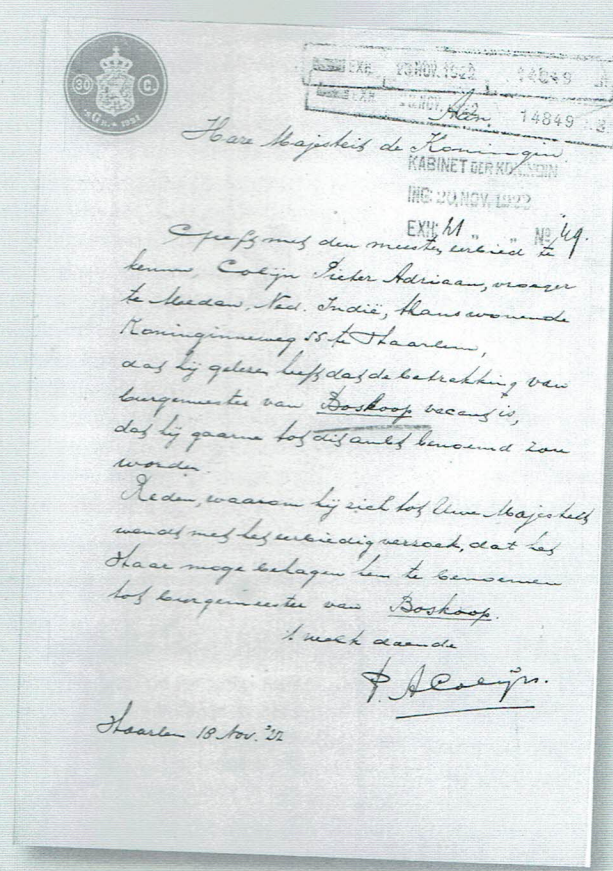 30 C.
EXH. 20 NOV. 1922 14849
EXH. 20 NOV. 1922 14849
Aan
Hare Majesteit de Koningin.
KABINET DER KONINGIN
ING: 20 NOV. 1922
EXH: 21 " " No 49.
Geeft met den meesten eerbied te
kennen, Colijn Pieter Adriaan, vroeger
te Medan, Ned. Indië, thans wonende
Koninginneweg 55 te Haarlem,
dat hij gelezen heeft dat de betrekking van
burgemeester van Boskoop vacant is,
dat hij gaarne tot dit ambt benoemd zou
worden.
Reden, waarom hij zich tot Uwe Majesteit
wendt met het eerbiedig verzoek, dat het
Haar moge behagen hem te benoemen
tot burgemeester van Boskoop.
't welk doende
P. A Colijn.
Haarlem 18 Nov. '22